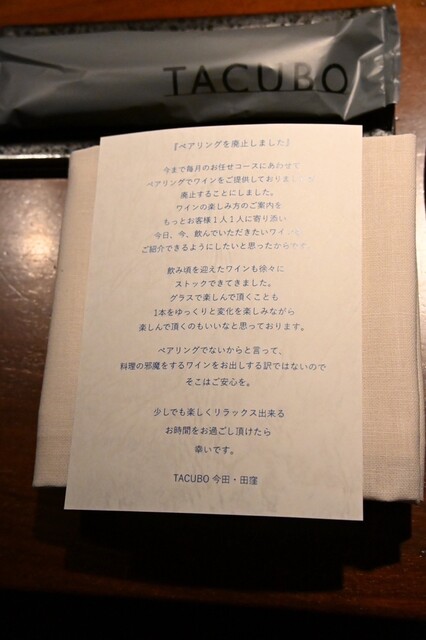 TACUBO
『ペアリングを廃止しました』
今まで毎月のお任せコースにあわせて
ペアリングでワインをご提供しておりま
廃止することにしました。
ワインの楽しみ方のご案内を
もっとお客様1人1人に寄り添い
今日、今、飲んでいただきたいワイン
ご紹介できるようにしたいと思ったからです
飲み頃を迎えたワインも徐々に
ストックできてきました。
グラスで楽しんで頂くことも
1本をゆっくりと変化を楽しみながら
楽しんで頂くのもいいなと思っております。
ペアリングでないからと言って、
料理の邪魔をするワインをお出しする訳ではないので
そこはご安心を。
少しでも楽しくリラックス出来る
お時間をお過ごし頂けたら
幸いです。
TACUBO 今田・田窪